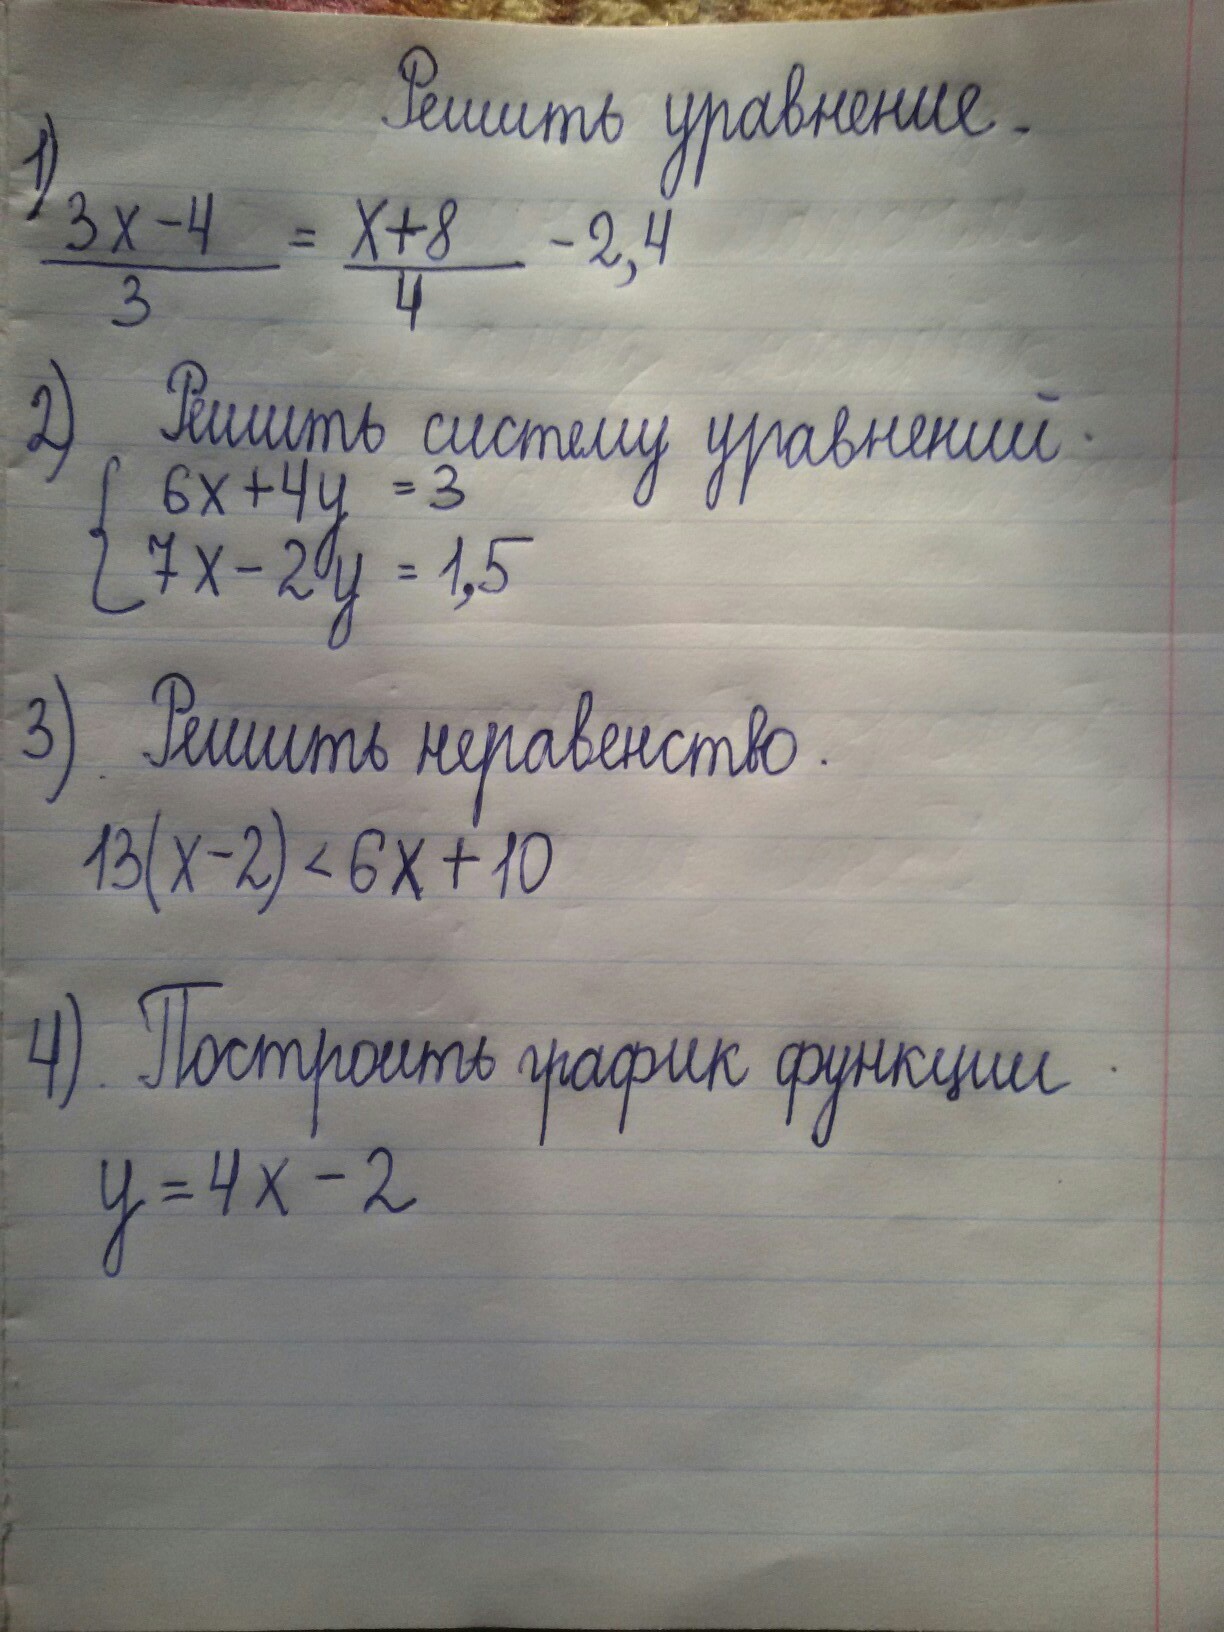 Решить уравнение.
1)
3x-4 / 3 = x+8 / 4 -2,4
2) Решить систему уравнений.
{ 6x+4y = 3
7x-2y = 1,5
3). Решить неравенство.
13(x-2) < 6x+10
4). Построить график функции.
y=4x-2